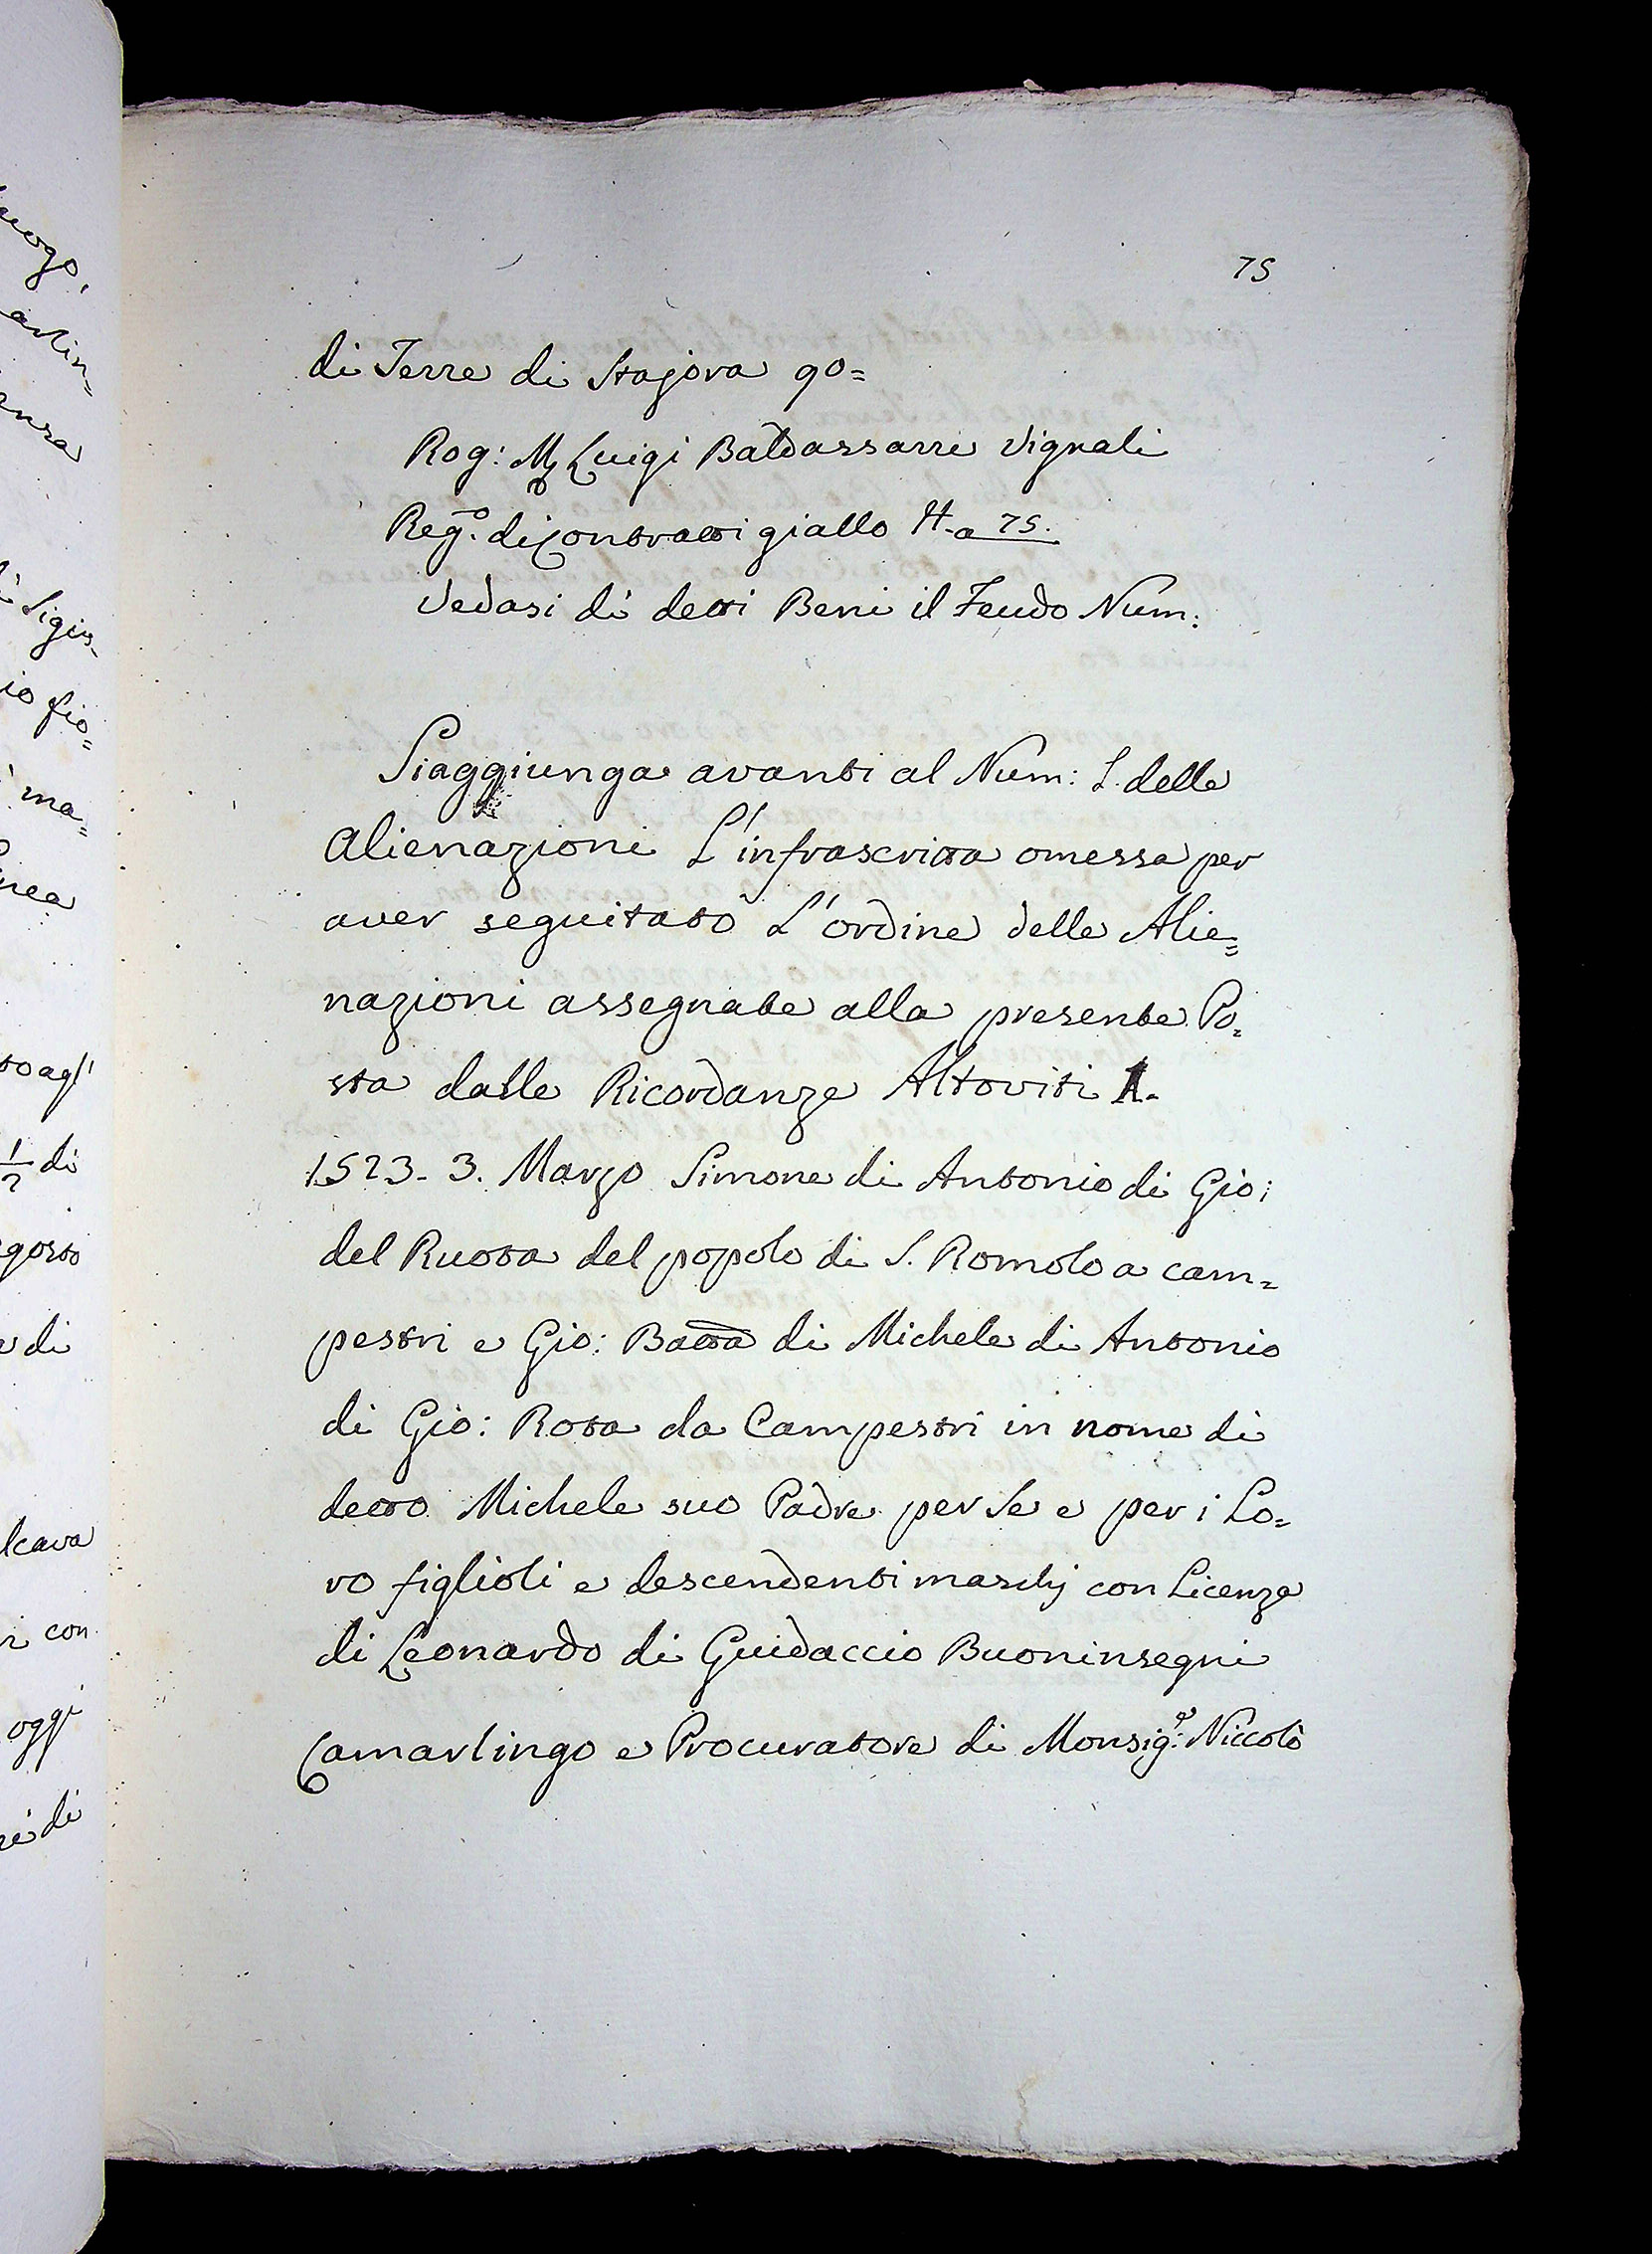 75
di Terre di Stajora 90=
Rog: M. Luigi Baldassarre Vignali
Reg.o di Contratti giallo H. a 75.
Vedasi di detti Beni il Feudo Num:
Siaggiunga avanti al Num: 5. delle
Alienazioni L'infrascritta omessa per
aver seguitato L'ordine delle Alie=
nazioni assegnate alla presente Po=
sta dalle Ricordanze Altoviti 1.
1523. 3. Marzo Simone di Antonio di Gio:
del Ruota del popolo di S. Romolo a cam=
pestri e Gio: Batta di Michele di Antonio
di Gio: Rota da Campestri in nome di
detto Michele suo Padre per Se e per i Lo=
ro figlioli e descendenti maschj con Licenza
di Leonardo di Guidaccio Buoninsegni
Camarlingo e Procuratore di Monsig.e: Niccolò
uogo,
artin=
enza
Sigis=
io fio=
ma=
nea
to agl'
1/2 di
gosto
e di
lcava
con
oggi
di